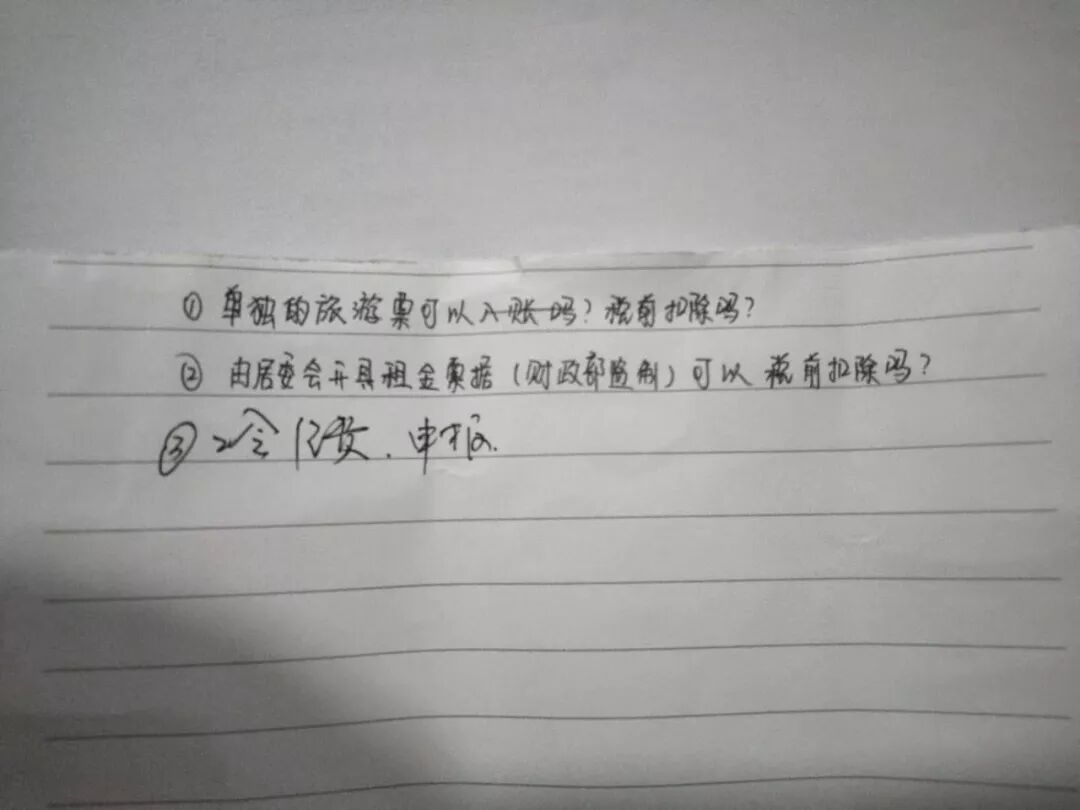 ① 单独的旅游票可以入账吗?税前扣除吗?
② 由居委会开具租金票据(财政部监制)可以税前扣除吗?
③ 工会经费、申报.